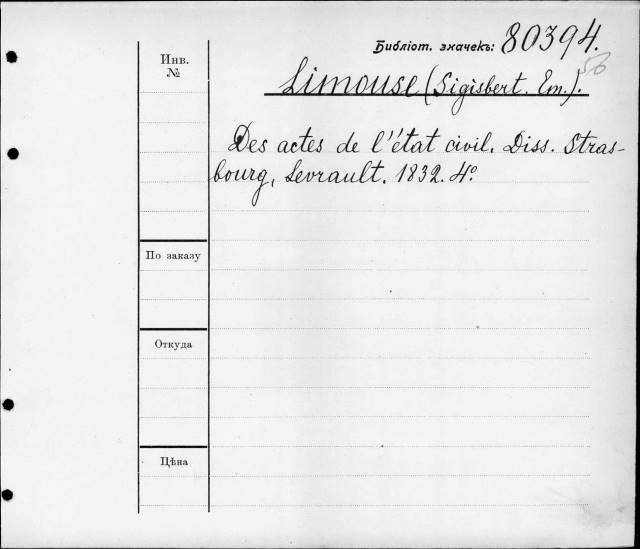 Библіот. значекъ: 80394.
56
Инв.
№
Limouse (Sigisbert. Em.).
Des actes de l'état civil. Diss. Stras-
bourg, Levrault. 1832. 4º.
По заказу
Откуда
Цѣна